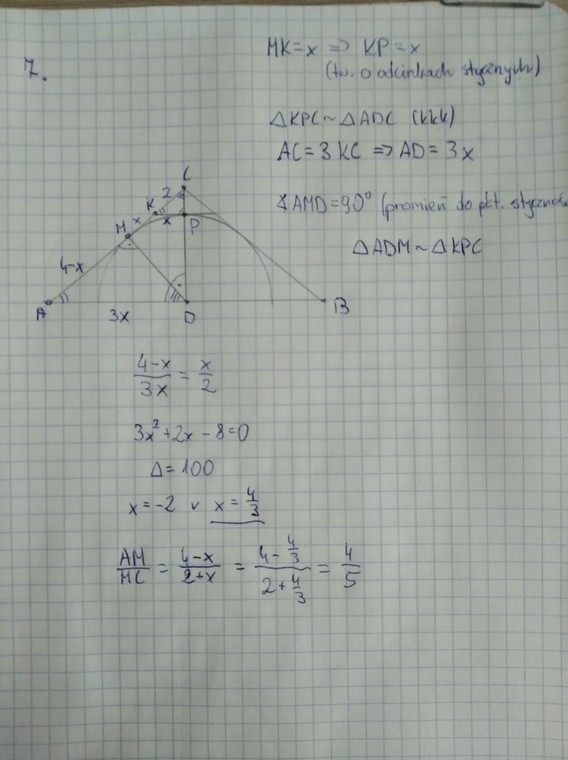 7.
MK = x ⇒ KP = x
(tw. o odcinkach stycznych)
△KPC ~ △ADC (kkk)
AC = 3KC ⇒ AD = 3x
∢AMD = 90° (promień do pkt.
△ADM ~ △KPC
C
2
K
x
x
M
P
4-x
A
3x
D
B
(4-x)/(3x) = x/2
3x² + 2x - 8 = 0
Δ = 100
x = -2 v x = 4/3
AM/MC = (4-x)/(2+x) = (4 - 4/3)/(2 + 4/3) = 4/5